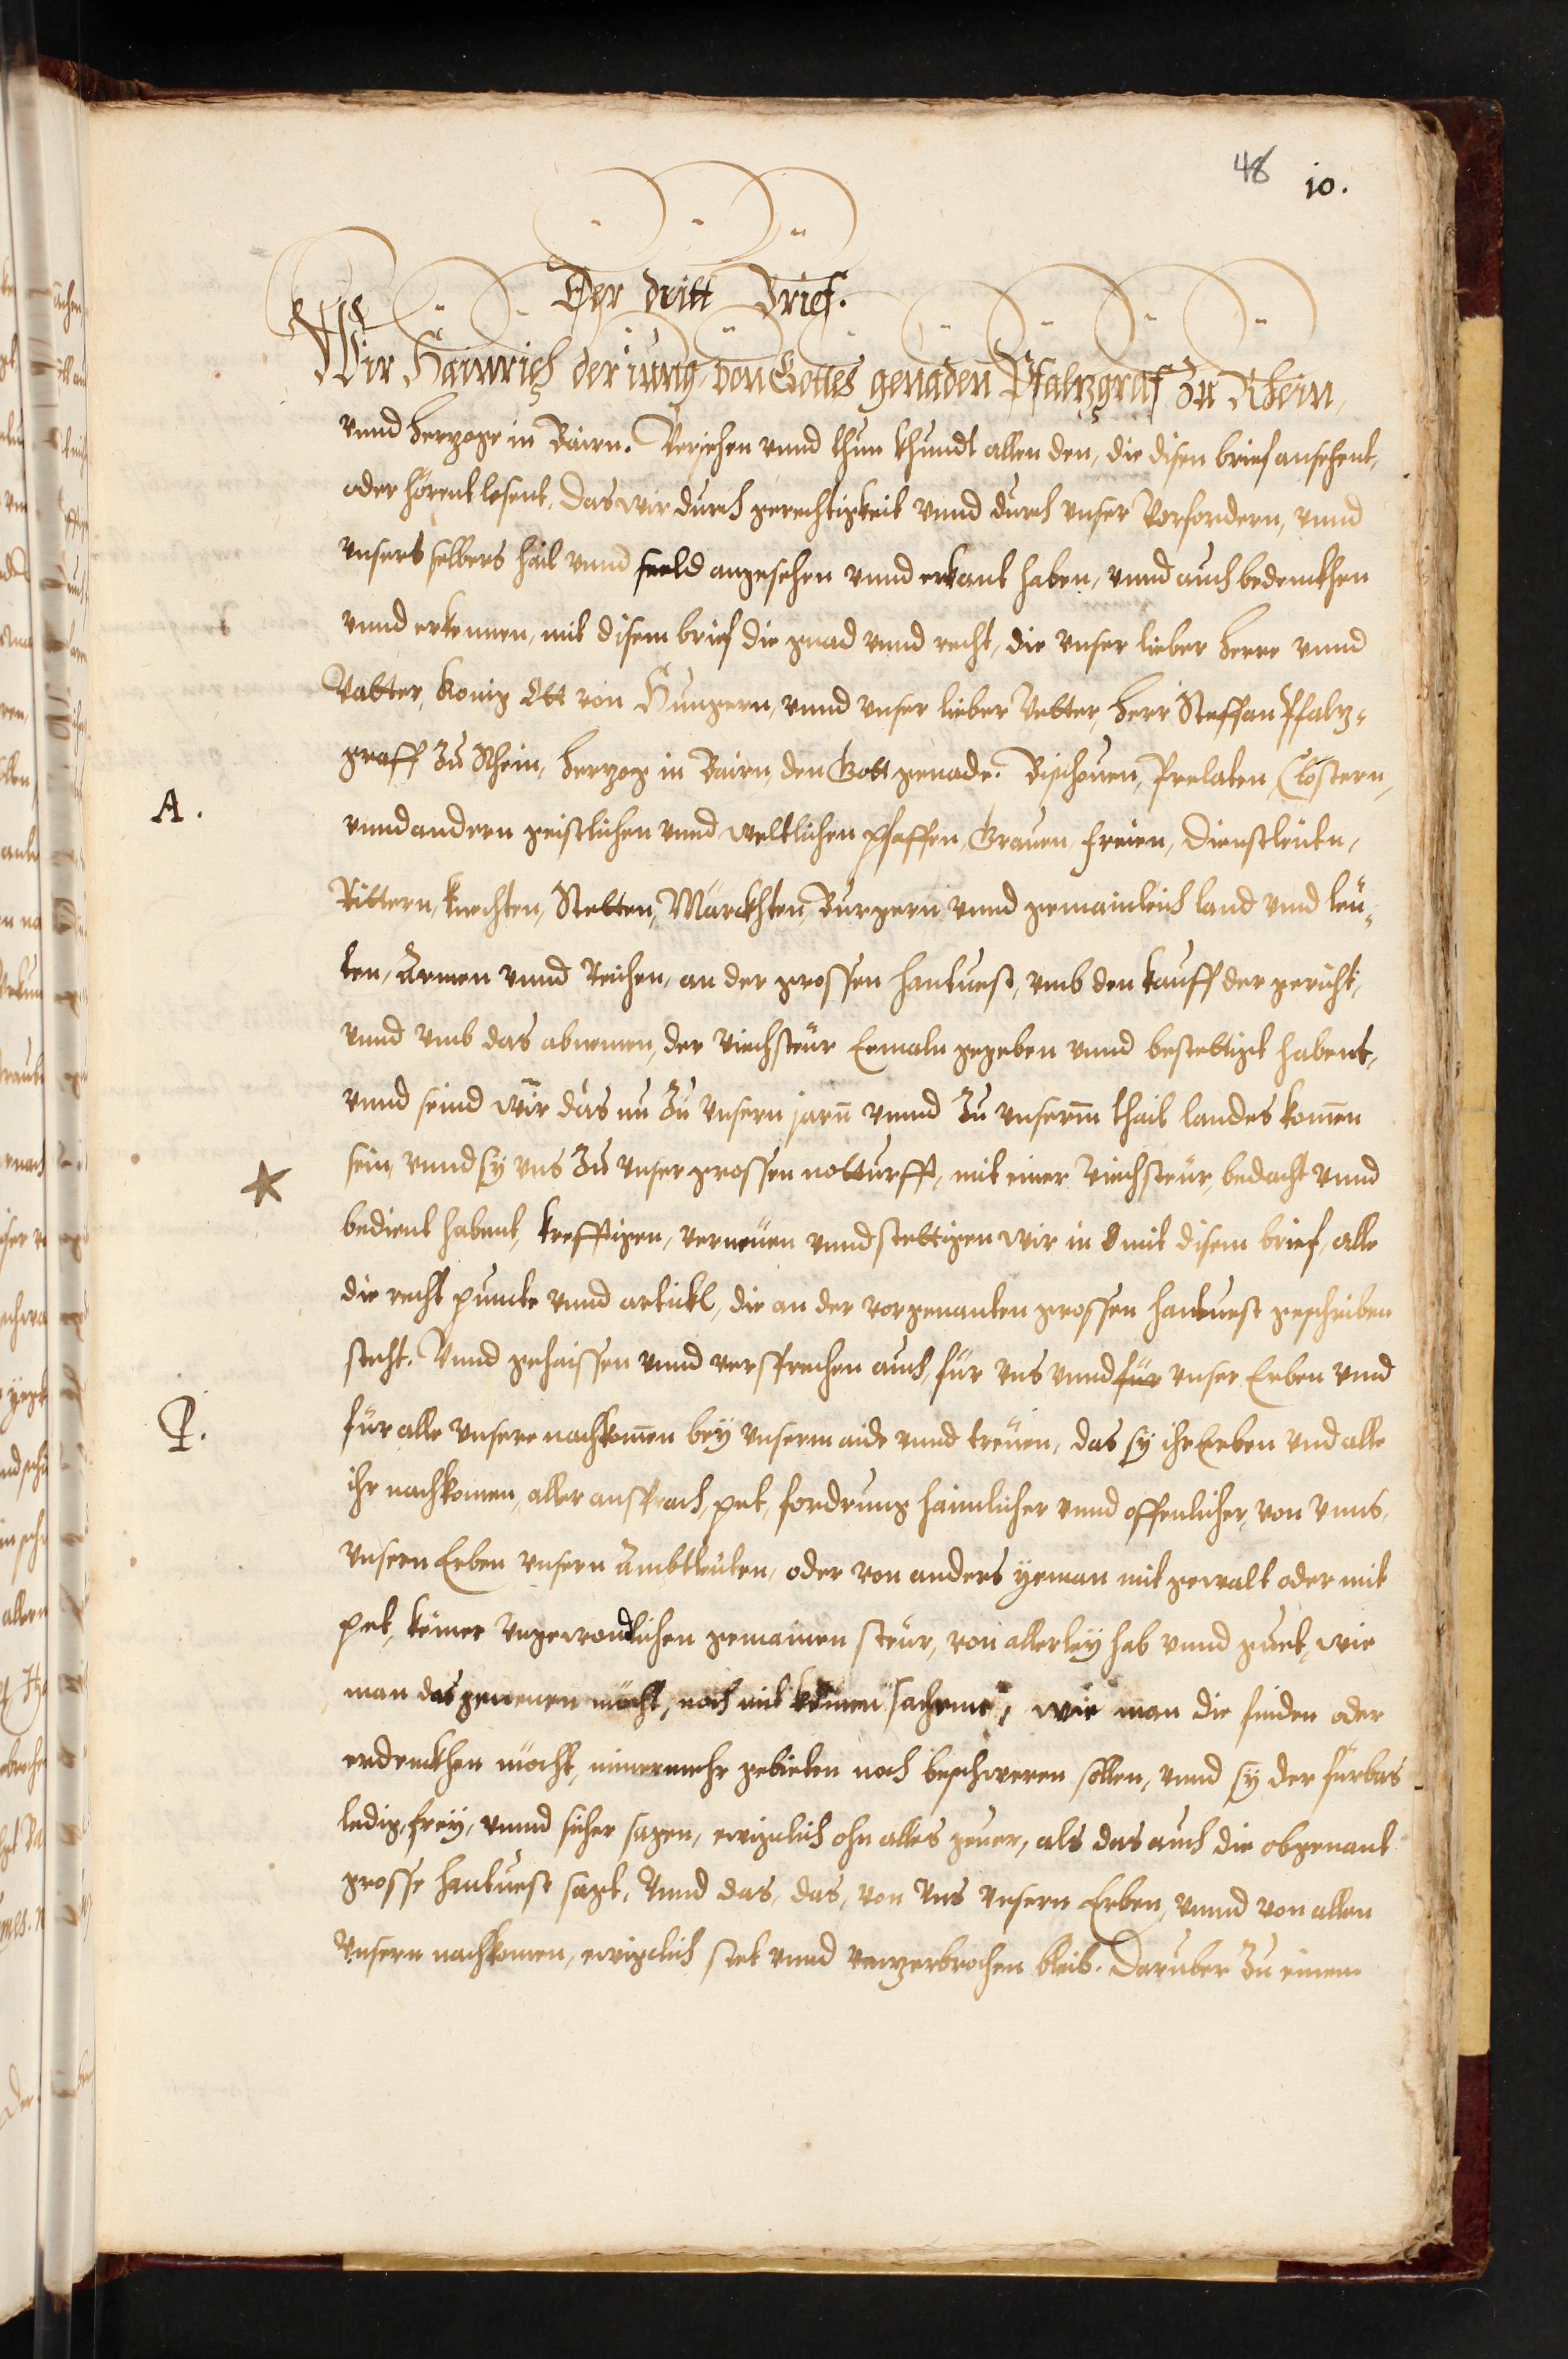 48 10.
Der dritt Brief.
Wir Hainrich der iung, von Gottes genaden Pfaltzgraf Zu Rhein,
vnnd Hertzoge in Bairn. Veriehen vnnd thun khundt allen den, die disen brief ansehent,
oder hörent lesent, das wir durch gerechtigkeit vnnd durch vnser Vorfordern, vnnd
vnsers selbers hail vnnd seeld angesehen vnnd erkant haben, vnnd auch bedenckhen
vnnd erkennen, mit disem brief die gnad vnnd recht, die vnser lieber Herre vnnd
Vatter, König Ott von Hungern, vnnd vnser lieber Vetter, Herr Steffan Pfaltz-
graff Zu Rhein, Hertzog in Bairn, den Gott genade. Bischouen, Prelaten, Clöstern,
A.
vnnd andern geistlichen vnnd weltlichen pfaffen, Grauen, freien, dienstleuten,
Rittern, knechten, Stetten, Märckhten, Burgern vnnd gemainleich land vnnd leü-
ten, Armen vnnd Reichen, an der grossen hantuest, vmb den kauff der gericht,
vnnd vmb das abnemen, der viechsteür Eemaln gegeben vnnd bestettigt habent,
vnnd seind wir das nu Zu vnsern jarn vnnd Zu vnserm thail landes komen
sein, vnnd sy vns Zu vnser grossen notturfft, mit einer viechsteür, bedacht vnnd
bedient habent, krefftigen, verneüen vnnd stettigen wir in mit disem brief, alle
die recht puncte vnnd artickl, die an der vorgenanten grossen hantuest geschriben
steht. Vnnd gehaissen vnnd versprechen auch, für vns vnnd für vnser Erben vnnd
für alle vnsere nachkomen bey vnserm aide vnnd treüen, das sy ihr Erben vnd alle
ihr nachkomen, aller ansprach, pet, fordrung haimlicher vnnd offenlicher, von vnns,
vnsern Erben vnsern Ambtleuten, oder von anders yeman mit gewalt oder mit
pet, keiner vngewondlichen gemainen steür, von allerley hab vnnd guet, wie
man das genenen möcht, noch mit keinen sachenne, wie man die finden oder
erdenckhen möcht, nimermehr gebieten noch beschweren sollen, vnnd sy der fürbas
ledig, frey, vnnd sicher sagen, ewigclich ohn alles geuer, als das auch die obgenant
grosse hantuest sagt, Vnnd das, das, von vns vnsern Erben, vnnd von allen
vnsern nachkomen, ewigclich stet vnnd vnnzerbrochen bleib. Daruber Zu einem